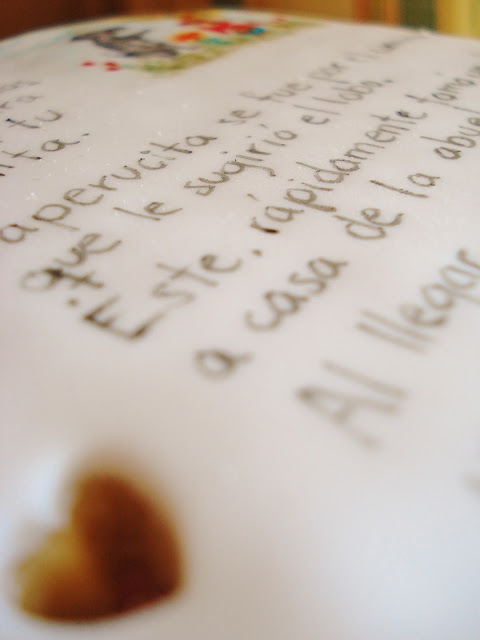 tu
aperucita se fue por el
que le sugirió el lobo.
Este, rápidamente
a casa de la
Al llegar